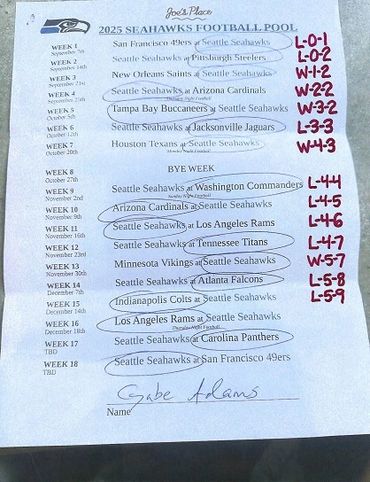 Joe's Place
2025 SEAHAWKS FOOTBALL POOL
WEEK 1 San Francisco 49ers at Seattle Seahawks L-0-1
September 7th
WEEK 2 Seattle Seahawks at Pittsburgh Steelers L-0-2
September 14th
WEEK 3 New Orleans Saints at Seattle Seahawks W-1-2
September 21st
WEEK 4 Seattle Seahawks at Arizona Cardinals W-2-2
September 25th Thursday Night Football
WEEK 5 Tampa Bay Buccaneers at Seattle Seahawks W-3-2
October 5th
WEEK 6 Seattle Seahawks at Jacksonville Jaguars L-3-3
October 12th
WEEK 7 Houston Texans at Seattle Seahawks W-4-3
October 20th Monday Night Football
WEEK 8 BYE WEEK
October 27th
WEEK 9 Seattle Seahawks at Washington Commanders L-4-4
November 2nd Sunday Night Football
WEEK 10 Arizona Cardinals at Seattle Seahawks L-4-5
November 9th
WEEK 11 Seattle Seahawks at Los Angeles Rams L-4-6
November 16th
WEEK 12 Seattle Seahawks at Tennessee Titans L-4-7
November 23rd
WEEK 13 Minnesota Vikings at Seattle Seahawks W-5-7
November 30th
WEEK 14 Seattle Seahawks at Atlanta Falcons L-5-8
December 7th
WEEK 15 Indianapolis Colts at Seattle Seahawks L-5-9
December 14th
WEEK 16 Los Angeles Rams at Seattle Seahawks
December 18th Thursday Night Football
WEEK 17 Seattle Seahawks at Carolina Panthers
TBD
WEEK 18 Seattle Seahawks at San Francisco 49ers
TBD
Gabe Adams
Name